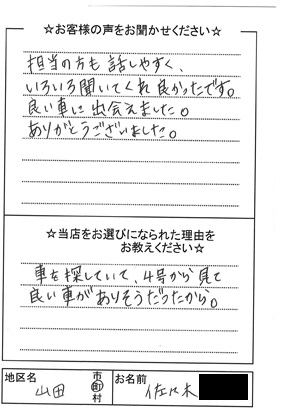 ☆お客様の声をお聞かせください☆
担当の方も話しやすく、
いろいろ聞いてくれ良かったです。
良い車に出会えました。
ありがとうございました。
☆当店をお選びになられた理由を
お教えください☆
車を探していて、4号から見て
良い車がありそうだったから。
地区名 山田 市町村 お名前 佐々木